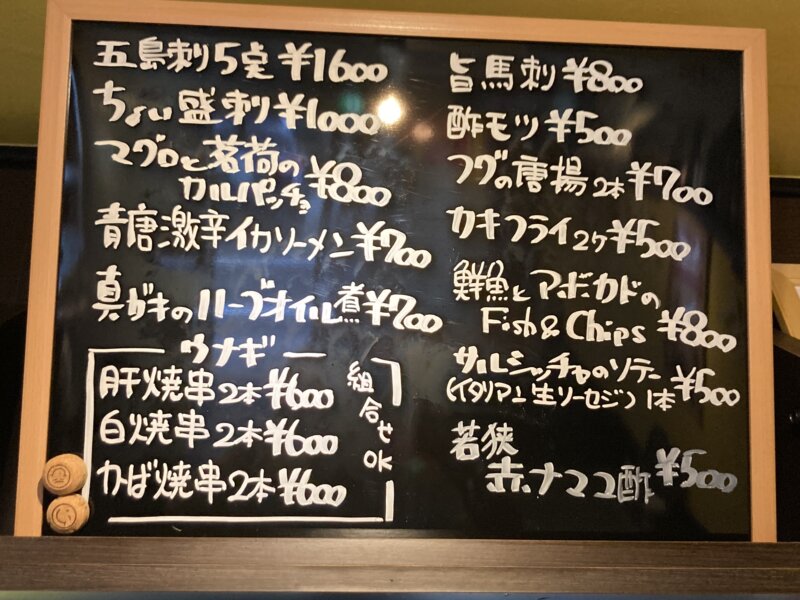 五島刺り5点 ¥1600
ちょい盛刺 ¥1000
マグロと茗荷の
カルパッチョ ¥800
青唐激辛イカソーメン ¥700
真ガキのハーブオイル煮 ¥700
ウナギ
肝焼串2本 ¥600
白焼串2本 ¥600
かば焼串2本 ¥600
組合せOK
旨馬刺 ¥800
酢モツ ¥500
フグの唐揚2本 ¥700
カキフライ2ケ ¥500
鮮魚とアボカドの
Fish & Chips ¥800
サルシッチャのソテー ¥500
(イタリアン生ソーセージ) 1本
若狭
赤ナマコ酢 ¥500